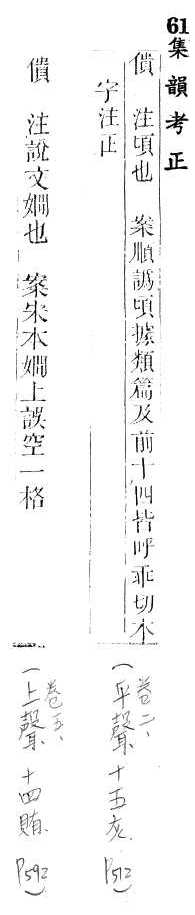 61
集韻考正
僓 注頃也 案順譌頃據類篇及前十四皆呼乖切本
字注正
僓 注說文嫺也 案宋本嫺上誤空一格
卷二、
(平聲 十五灰. P512)
卷五、
(上聲 十四賄. P592)